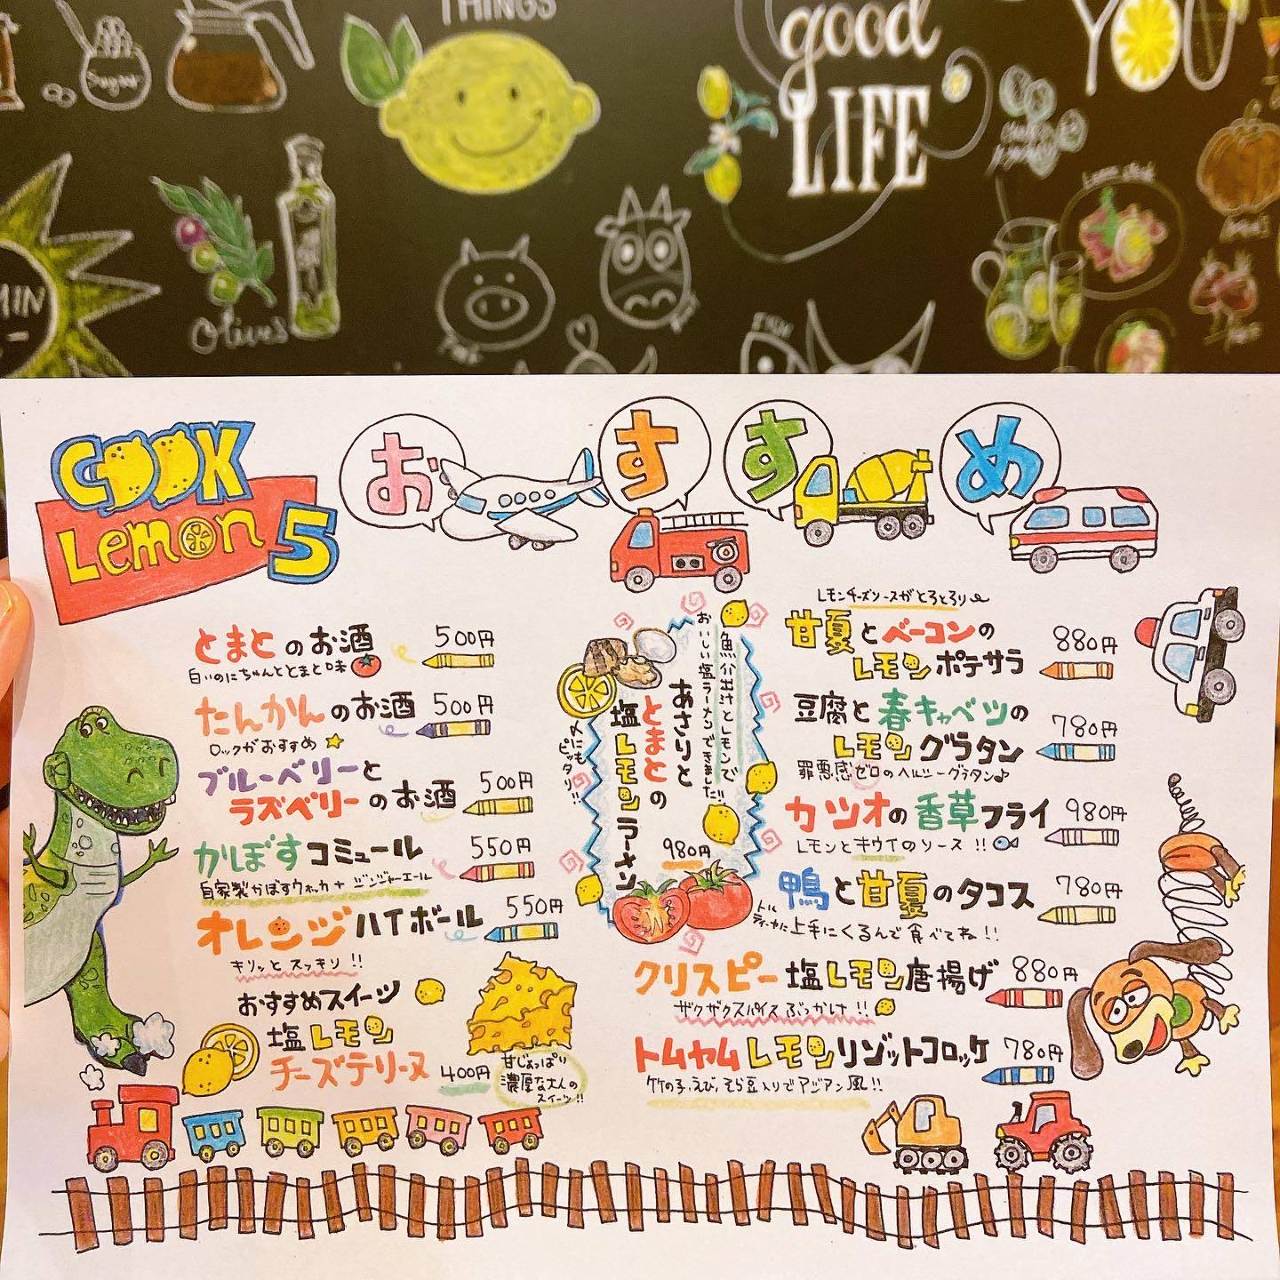 THINGS
good
LIFE
YOU
Sugar
Olives
FISH
COOK
Lemon
5
おすすめ
とまとのお酒 500円
白いのにちゃんととまと味
たんかんのお酒 500円
ロックがおすすめ
ブルーベリーと
ラズベリーのお酒 500円
かぼすコミュール 550円
自家製かぼすウォッカ+ジンジャーエール
オレンジハイボール 550円
キリッとスッキリ!!
おすすめスイーツ
塩レモン
チーズテリーヌ 400円
甘じょっぱり
濃厚な大人の
スイーツ!!
魚介出汁とレモンで
おいしい塩ラーメンできました!!
あさりと
とまとの
塩レモンラーメン
〆にも
ピッタリ!!
980円
レモンチーズソースがとろとろり
甘夏とベーコンの
レモンポテサラ 880円
豆腐と春キャベツの
レモングラタン 780円
罪悪感ゼロのヘルシーグラタン♪
カツオの香草フライ 980円
レモンとキウイのソース!!
鴨と甘夏のタコス 780円
トルティーヤに上手にくるんで食べてね!!
クリスピー塩レモン唐揚げ 880円
ザクザクスパイスぶっかけ!!
トムヤムレモンリゾットコロッケ 780円
竹の子、えび、そら豆入りでアジアン風!!